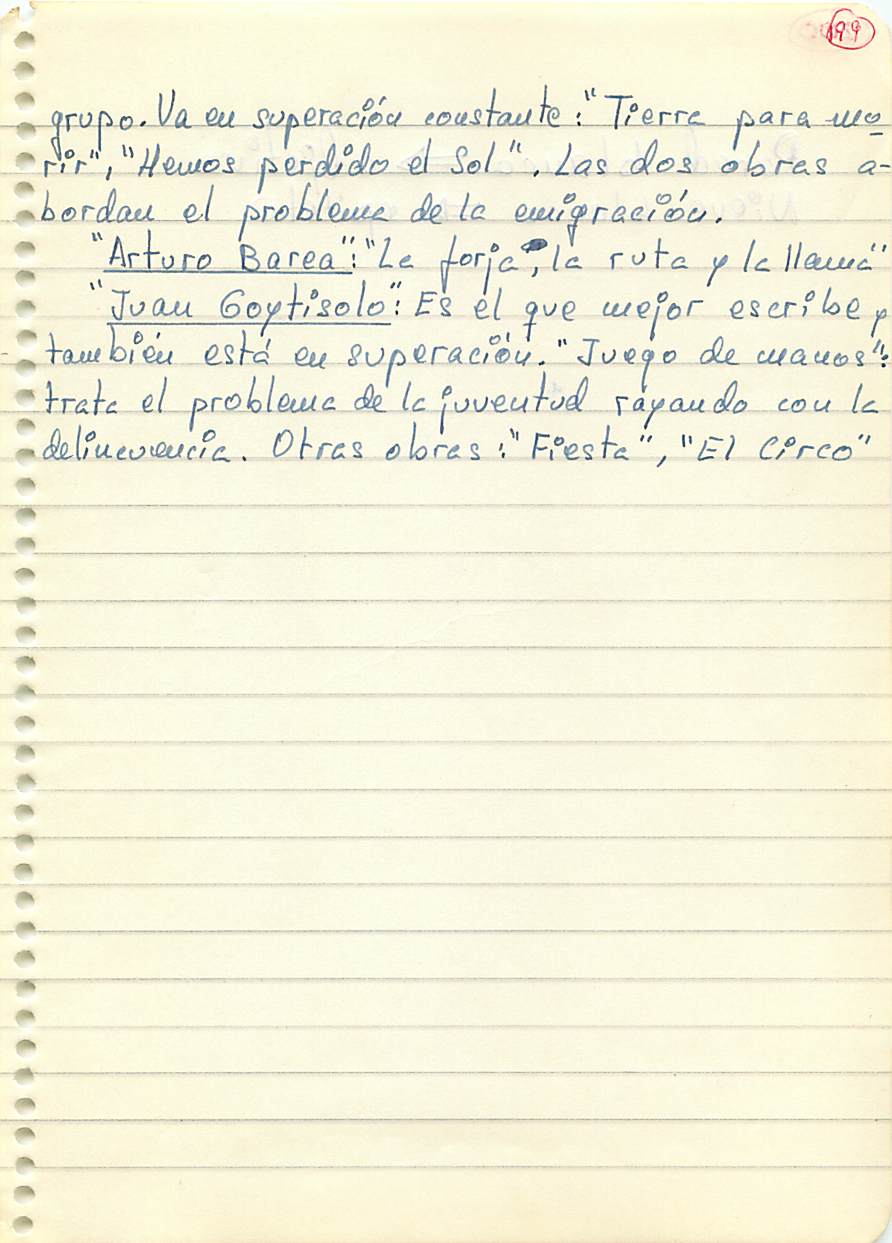 199
grupo. Va en superación constante: "Tierra para mo
rir", "Hemos perdido el Sol". Las dos obras a-
bordan el problema de la emigración.
"Arturo Barea": "La forja, la ruta y la llama"
"Juan Goytisolo": Es el que mejor escribe y
también está en superación. "Juego de manos":
trata el problema de la juventud rayando con la
delincuencia. Otras obras: "Fiesta", "El Circo"